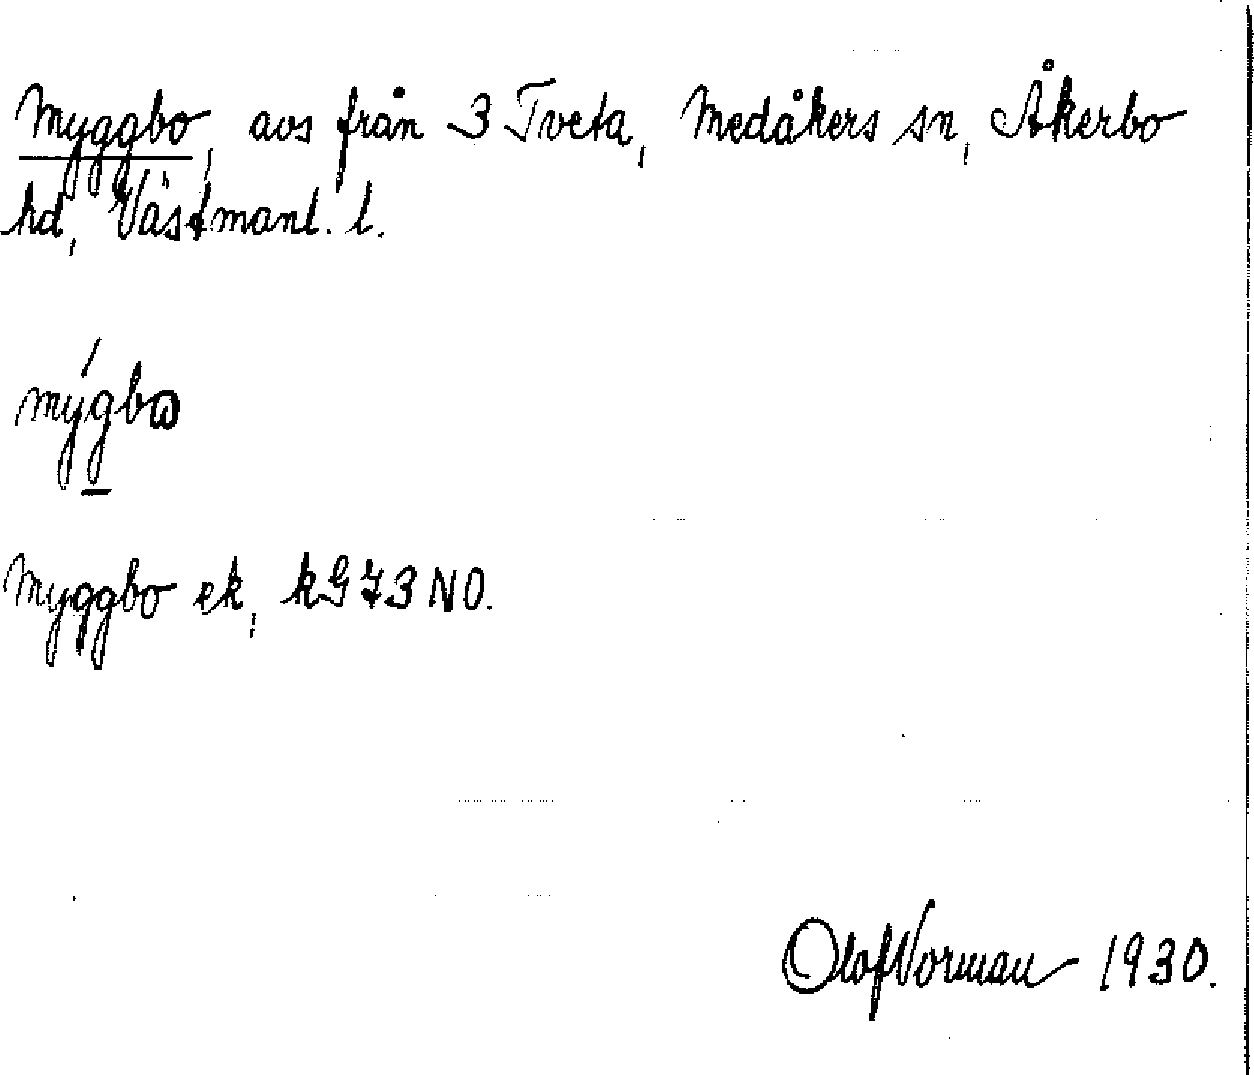 Myggbo, avs från 3 Tveta, Medåkers sn, Åkerbo
hd, Västmanl. l.
mýgbω
Myggbo ek, kG 73 NO.
Olof Norman 1930.